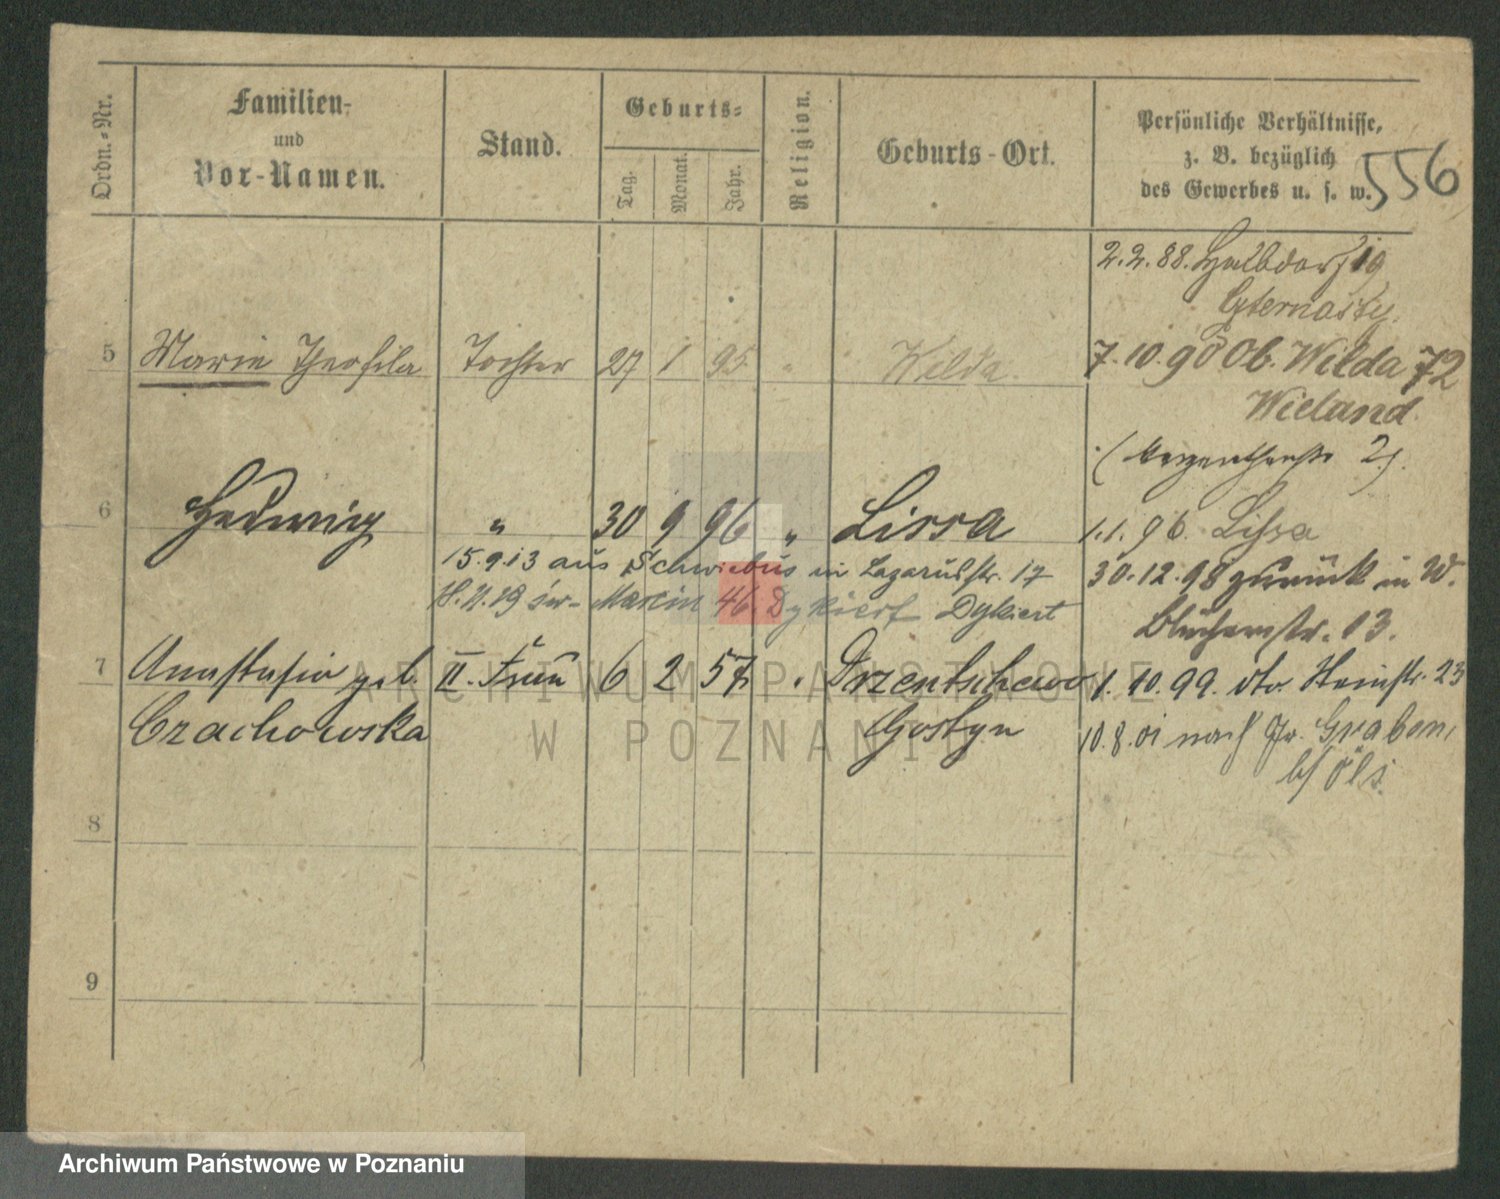 Ordn.-Nr.
Familien-
und
Vor-Namen.
Stand.
Geburts-
Tag.
Monat.
Jahr.
Religion.
Geburts-Ort.
Persönliche Verhältnisse,
z. B. bezüglich
des Gewerbes u. s. w.
556
2.2.88. Halbdorf 19
5 Marie Theofila Tochter 27 1 95 " Wilda.
7.10.90 Ob. Wilda 72
Wieland
2).
6 Hedwig " 30 9 96 " Lissa
1.1.96. Lissa
15.9.13 aus Schwiebus in Lazarusstr. 17
30.12.98 zurück in W.
Martin 46. Dykiert Dykiert
Blücherstr. 13.
7 Anastasia geb. II. Frau 6 2 57 " Drzentschewo
1.10.99. dto. 23
Czachowska Gostyn
10.8.01 nach Gr. Graben,
b/ Öls.
8
9
ARCHIWUM PAŃSTWOWE
W POZNANIU
Archiwum Państwowe w Poznaniu